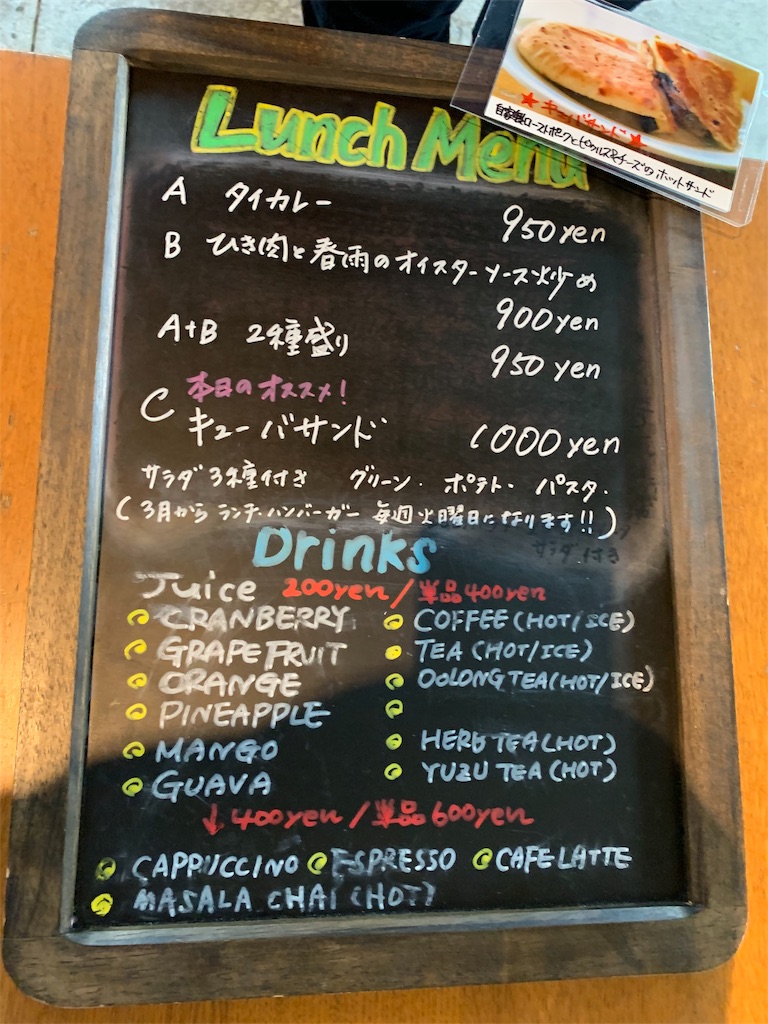 ★キューバサンド★
自家製ローストポークとピクルス&チーズのホットサンド
Lunch Menu
A タイカレー 950yen
B ひき肉と春雨のオイスターソース炒め
900yen
A+B 2種盛り 950yen
本日のオススメ!
C キューバサンド 1000yen
サラダ3種付き グリーン・ポテト・パスタ・
(3月から ランチ・ハンバーガー 毎週火曜日になります!!)
サラダ付き
Drinks
Juice 200yen/単品400yen
CRANBERRY
GRAPEFRUIT
ORANGE
PINEAPPLE
MANGO
GUAVA
COFFEE(HOT/ICE)
TEA(HOT/ICE)
OOLONG TEA(HOT/ICE)
HERB TEA(HOT)
YUZU TEA(HOT)
↓400yen/単品600yen
CAPPUCCINO ESPRESSO CAFE LATTE
MASALA CHAI(HOT)